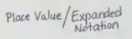 Place Value/Expanded
Notation